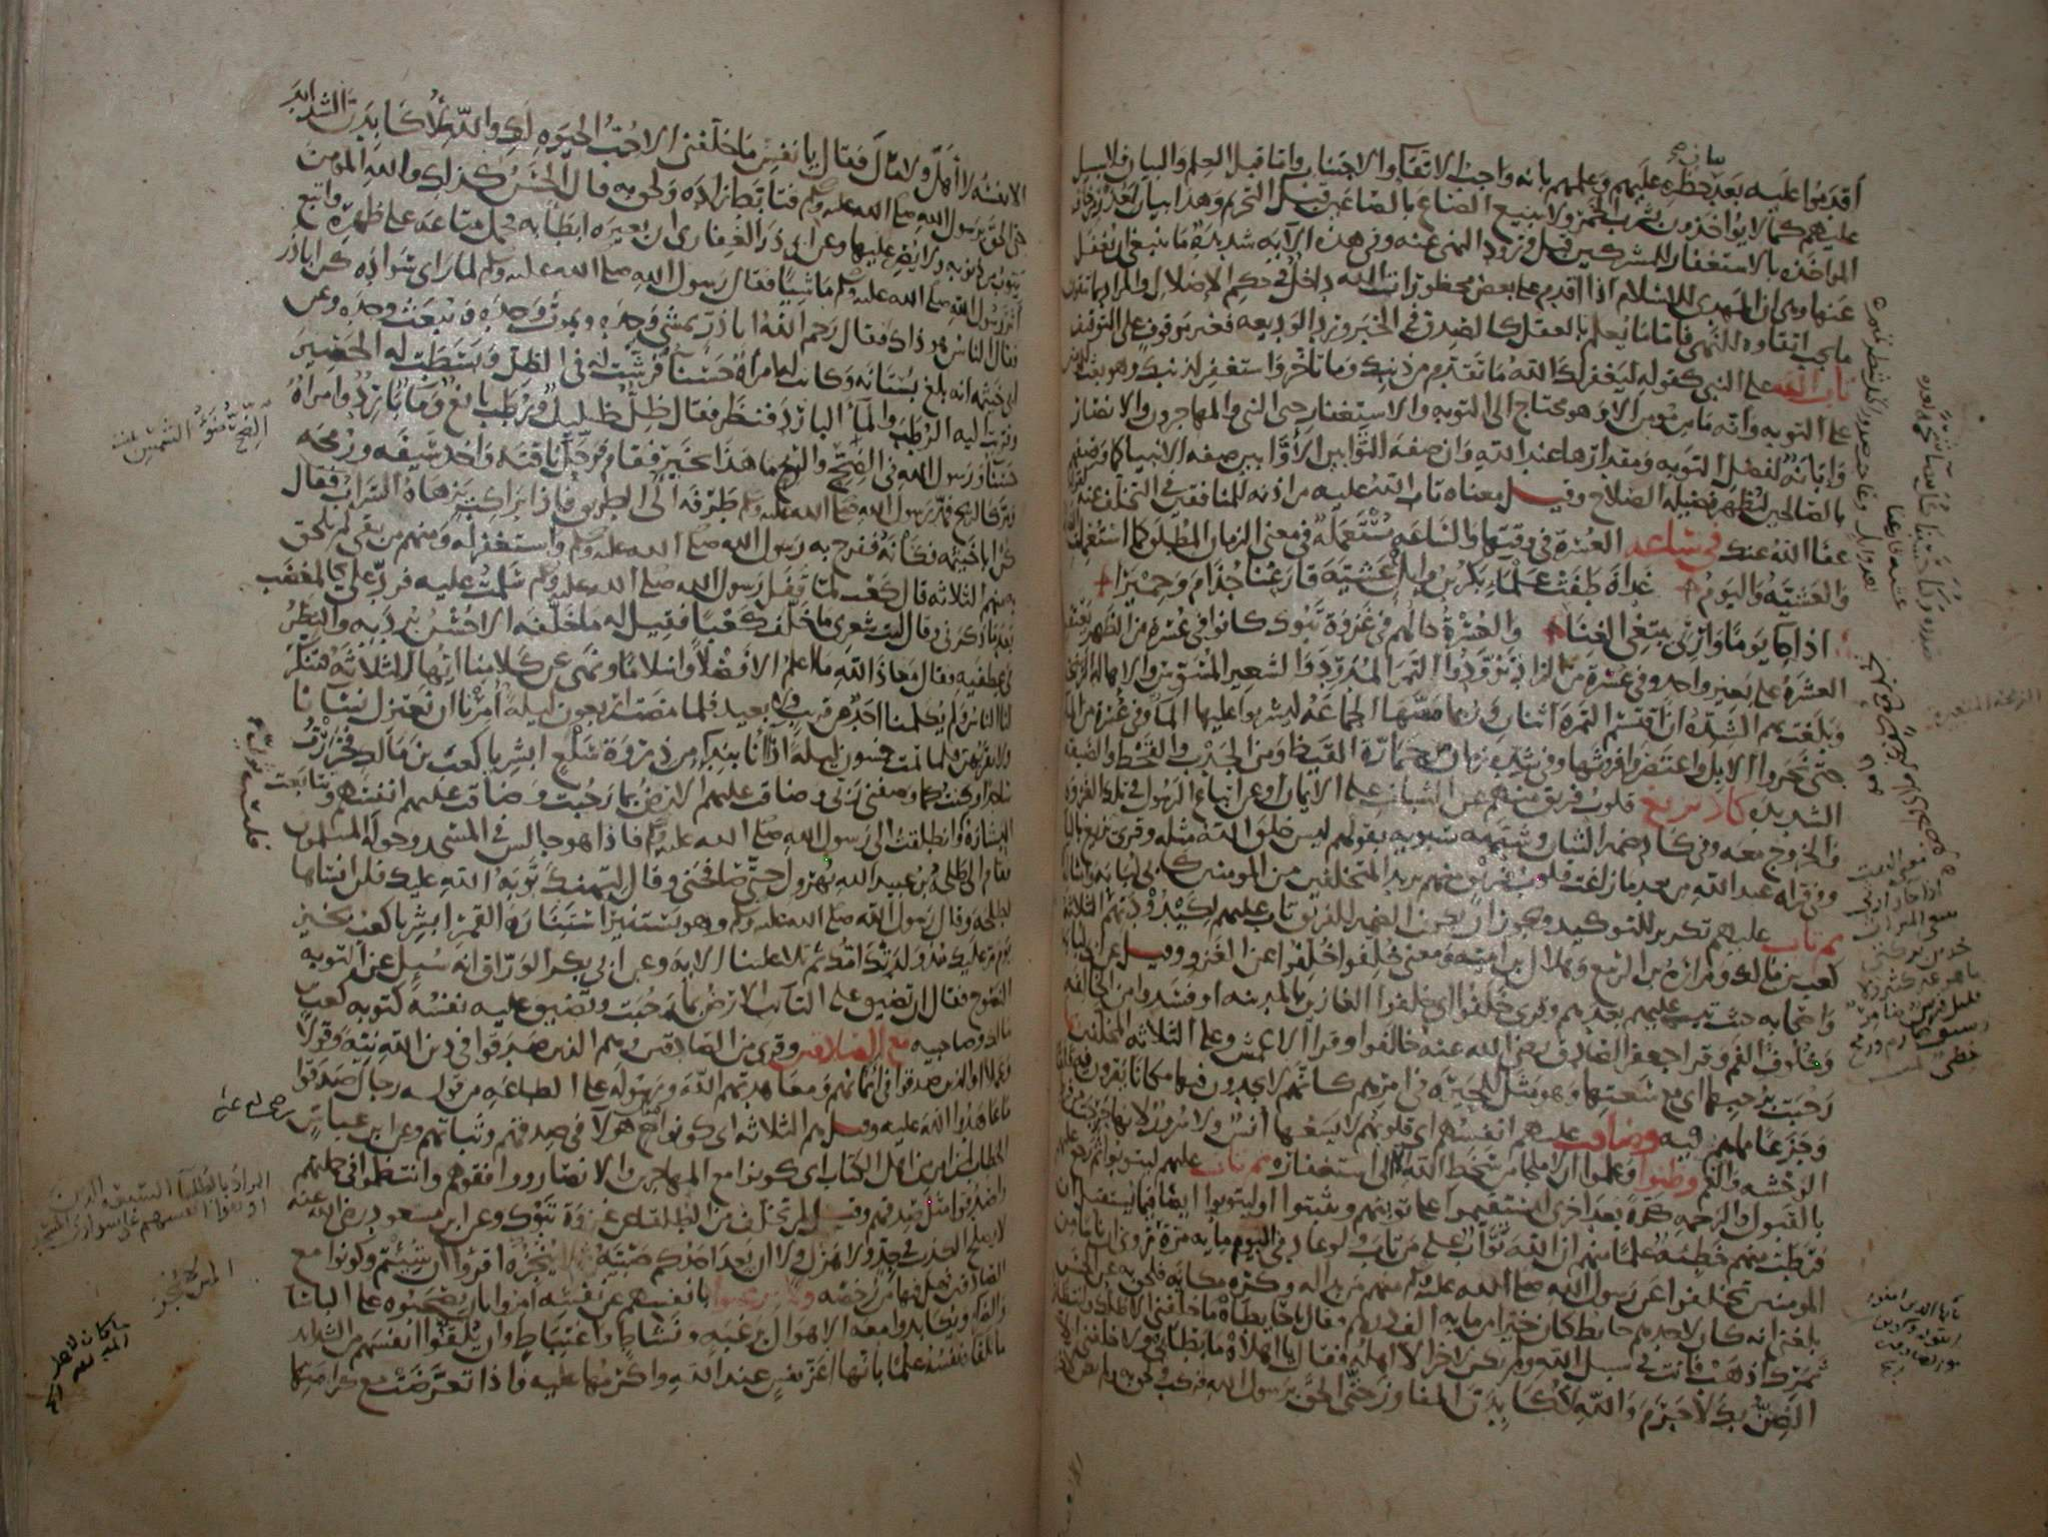 اقدموا عليه بعد بيان حظره عليهم وعلمهم بانه واجب الاتقاء والاجتناب واما قبل العلم والبيان فلا سبيل
عليهم كما لا يؤاخذون بشرب الخمر ولا ببيع الصاع بالصاعين قبل التحريم وهذا بيان لعذر من خاف
المؤاخذه بالاستغفار للمشركين قبل ورود النهى عنه وفى هذه الآيه شديدة ما ينبغى ان يغفل
عنها وهى ان المهدى للاسلام اذا اقدم على بعض محظورات الله داخل فى حكم الاضلال والمراد بما يتقون
ما يجب اتقاوه للنهى فاما ما يعلم بالعقل كالصدق فى الخبر ورد الوديعه فغير موقوف على التوقيف
تاب الله على النبي كقوله ليغفر لك الله ما تقدم من ذنبك وما تاخر واستغفر لذنبك وهو بعث للمؤمنين
على التوبه وانه ما من مؤمن الا وهو محتاج الى التوبه والاستغفار حتى النبى والمهاجرون والانصار
وابانة لفضل التوبه ومقدارها عند الله وان صفه التوابين الاوابين صفه الانبيا كما وصفهم
بالصالحين ليظهر فضيله الصلاح وقيل معناه تاب الله عليه من اذنه للمنافقين فى التخلف عنه كقوله
عفا الله عنك فى ساعه العسرة فى وقتها والساعه مستعملة فى معنى الزمان المطلق كما استعملت
والعشيه واليوم غداة طفت علماء بكر بن وائل عشية قارعنا جذام وحميرا
اذا جا يوما وارثى يبتغى الغنا والعسرة حالهم فى غزوة تبوك كانوا فى عسرة من الظهر يعتقب
العشرة على بعير واحد وفى عسرة من الزاد تزودوا التمر المدود والشعير المسوس والاهالة الزنخة
وبلغت بهم الشدة ان اقتسم التمرة اثنان وربما مصها الجماعة ليشربوا عليها الما وفى عسرة من الما
حتى نحروا الابل واعتصروا فروثها وفى شدة زمان من حمارة القيظ ومن الجدب والقحط والضيقه
الشديده كاد يزيغ قلوب فريق منهم عن الثبات على الايمان او عن اتباع الرسول فى تلك الغزوه
والخروج معه وفى كاد ضمير الشان وشبهه سيبويه بقولهم ليس خلق الله مثله وقرى يزيغ باليا
وفى قراه عبد الله من بعد ما زاغت قلوب فريق منهم يريد المتخلفين من المومنين كابى لبابه وامثاله
ثم تاب عليهم تكرير للتوكيد ويجوز ان يكون الضمير للفريق تاب عليهم لكيدودتهم الثلاثة
كعب بن مالك ومرارة بن الربيع وهلال بن اميه ومعنى خلفوا خلفوا عن الغزو وقيل عن ابى لبابه
واصحابه حيث تيب عليهم بعدهم وقرى خلفوا اى خلفوا الغازين بالمدينه او فسدوا من الخالفه
وخلوف الفم وقرا جعفر الصادق رضى الله عنه خالفوا وقرا الاعمش وعلى الثلاثه المخلفين
رحبت برحبها اى مع سعتها وهو مثل للحيرة فى امرهم كانهم لا يجدون فيها مكانا يقرون فيه قلقا
وجزعا مما هم فيه وضاقت عليهم انفسهم اى قلوبهم لا يسعها انس ولا سرور لانها حرجت من فرط
الوحشه والغم وظنوا وعلموا ان لا ملجا من سخط الله الا الى استغفاره ثم تاب عليهم ليتوبوا ثم رجع عليهم
بالقبول والرحمه كرة بعد اخرى ليستقيموا على توبتهم ويثبتوا او ليتوبوا ايضا فيما يستقبل ان
فرطت منهم خطيئه علما منهم ان الله تواب على من تاب ولو عاد فى اليوم مايه مرة روى ان ناسا من
المومنين تخلفوا عن رسول الله صلى الله عليه وسلم منهم من بدا له وكره مكانه فلحق به عن الحسن
بلغنى انه كان لاحدهم حايط كان خيرا من مايه الف درهم فقال يا حايطاه ما خلفنى الا ظلك وانتظار
ثمرك اذهب فانت فى سبيل الله ولم يكن لاخر الا اهله فقال يا اهلاه ما بطانى ولا خلفنى الا
الضن بك لا جرم والله لاكابدن المفاوز حتى الحق برسول الله فركب ولحق به ولم يكن لاخر
الا نفسه لا اهل ولا مال فقال يا نفس ما خلفنى الا حب الحيوة لك والله لاكابدن الشدايد
حتى الحق برسول الله صلى الله عليه وسلم فتابط زاده ولحق به قال الحسن كذلك والله المؤمن
يتوب من ذنوبه ولا يصر عليها وعن ابى ذر الغفارى ان بعيره ابطا به فحمل متاعه على ظهره واتبع
اثر رسول الله صلى الله عليه وسلم ماشيا فقال رسول الله صلى الله عليه وسلم لما راى سواده كن ابا ذر
فقال الناس هو ذاك فقال رحم الله ابا ذر يمشى وحده ويموت وحده ويبعث وحده وعن
ابى خيثمه انه بلغ بستانه وكانت له امراة حسنا فرشت له فى الظل وبسطت له الحصير
وقربت اليه الرطب والما البارد فنظر فقال ظل ظليل ورطب يانع وما بارد وامراة
حسنا ورسول الله فى الضح والريح ما هذا بخير فقام فرحل ناقته واخذ سيفه ورمحه
ومر كالريح فمد رسول الله صلى الله عليه وسلم طرفه الى الطريق فاذا براكب يزهاه السراب فقال
كن ابا خيثمه فكانه ففرح به رسول الله صلى الله عليه وسلم واستغفر له ومنهم من بقى لم يلحق
به منهم الثلاثه قال كعب لما قفل رسول الله صلى الله عليه وسلم سلمت عليه فرد على كالمغضب
بعد ما ذكرنى وقال ليت شعرى ما خلف كعبا فقيل له ما خلفه الا حسن برديه والنظر
فى عطفيه فقال معاذ الله ما اعلم الا فضلا واسلاما ونهى عن كلامنا ايها الثلاثه فتنكر
لنا الناس ولم يكلمنا احد من قريب ولا بعيد فلما مضت اربعون ليلة امرنا ان نعتزل نسانا
ولا نقربهن فلما تمت خمسون ليله اذا انا بندا من ذروة سلع ابشر يا كعب بن مالك فخررت
ساجدا وكنت كما وصفنى ربى وضاقت عليهم الارض بما رحبت وضاقت عليهم انفسهم وتتابعت
البشارة وانطلقت الى رسول الله صلى الله عليه وسلم فاذا هو جالس فى المسجد وحوله المسلمون
فقام الى طلحة بن عبيد الله يهرول حتى صافحنى وقال لتهنك توبه الله عليك فلن انساها
لطلحه وقال رسول الله صلى الله عليه وسلم وهو يستنير استنارة القمر ابشر يا كعب بخير
يوم مر عليك منذ ولدتك امك ثم تلا علينا الايه وعن ابى بكر الوراق انه سيل عن التوبه
النصوح فقال ان تضيق على التايب الارض بما رحبت وتضيق عليه نفسه كتوبه كعب
بن مالك وصاحبيه مع الصادقين وقرى من الصادقين وهم الذين صدقوا فى دين الله نية وقولا
وعملا او الذين صدقوا فى ايمانهم ومعاهدتهم الله ورسوله على الطاعه من قوله رجال صدقوا
ما عاهدوا الله عليه وقيل هم الثلاثه اى كونوا مع هولا فى صدقهم وثباتهم وعن ابن عباس
الخطاب لمن امن من اهل الكتاب اى كونوا مع المهاجرين والانصار ووافقوهم وانتظموا فى جملتهم
واصدقوا مثل صدقهم وقيل لمن تخلف من الطلقا عن غزوة تبوك وعن ابن مسعود رضى الله عنه
لا يصلح الكذب فى جد ولا هزل ولا ان يعد احدكم صبيه ثم لا ينجزه اقرؤا ان شئتم وكونوا مع
الصادقين فهل فيها من رخصه ولا يرغبوا بانفسهم عن نفسه امروا بان يصحبوه على الباسا
والضرا ويكابدوا معه الاهوال برغبة ونشاط واغتباط وان يلقوا انفسهم من الشدايد
ما تلقاه نفسه علما بانها اعز نفس عند الله واكرمها عليه واذا تعرضت مع كرامتها
الضح ضوء الشمس
رضى الله عنه